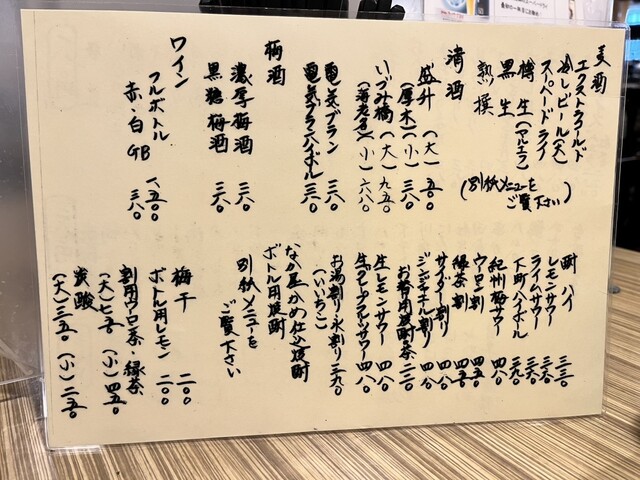 美酒
エクストラコールド
冷しビール(大)
スーパードライ
樽生(マルエフ)
黒生
熟撰
(別紙メニューを
ご覧下さい)
清酒
盛升(大)五〇
(厚木)(小)三八〇
いづみ橋(大)九五〇
(海老名)(小)六八〇
電気ブラン三八〇
電気ブランハイボール三八〇
梅酒
濃厚梅酒三六〇
黒糖梅酒三六〇
ワイン
フルボトル一、五〇
赤・白GB三八〇
酎ハイ三三〇
レモンサワー三五〇
ライムサワー三五〇
下町ハイボール三九〇
紀州梅サワー四八〇
ウーロン割四五〇
緑茶割四五〇
サイダー割り四八〇
ジンジャエール割り四八〇
お替用焼酎三二〇
生レモンサワー四八〇
生グレープフルーツサワー四八〇
お湯割り・水割り三九〇
(いいちこ)
なか屋かめ仕込焼酎
ボトル用焼酎
別紙メニューを
ご覧下さい
梅干二〇〇
ボトル用レモン二〇〇
割用ウーロン茶・緑茶
(大)七五〇(小)四五〇
炭酸
(大)三五〇(小)二五〇